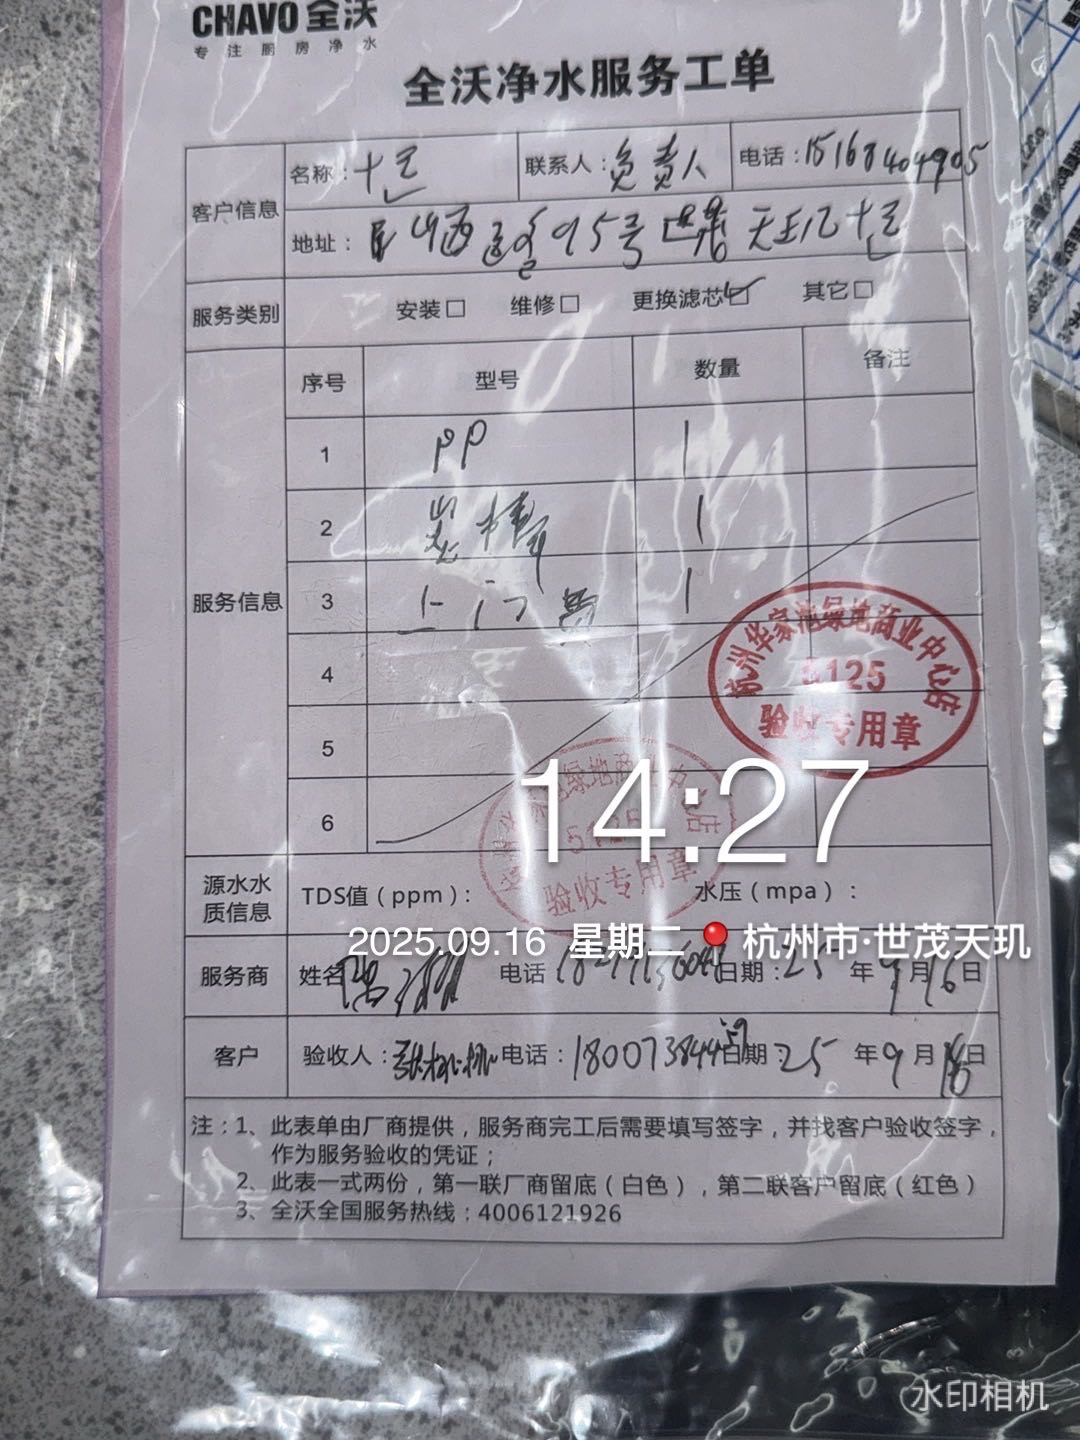 CHAVO 全沃
专注厨房净水
全沃净水服务工单
客户信息
名称：十足
联系人：负责人
电话：15168404905
地址：95号世茂天玑十足
服务类别
安装□ 维修□ 更换滤芯☑ 其它□
服务信息
序号 型号 数量 备注
1 PP 1
2 炭棒 1
3 上门费 1
4
5
6
杭州华家池绿地商业中心店
5125
验收专用章
5125
验收专用章
14:27
源水水质信息
TDS值（ppm）： 水压（mpa）：
2025.09.16 星期二 杭州市·世茂天玑
服务商
姓名 电话 日期：25年9月16日
客户
验收人： 电话：18007384459 日期：25年9月16日
注：1、此表单由厂商提供，服务商完工后需要填写签字，并找客户验收签字，
作为服务验收的凭证；
2、此表一式两份，第一联厂商留底（白色），第二联客户留底（红色）
3、全沃全国服务热线：4006121926
水印相机